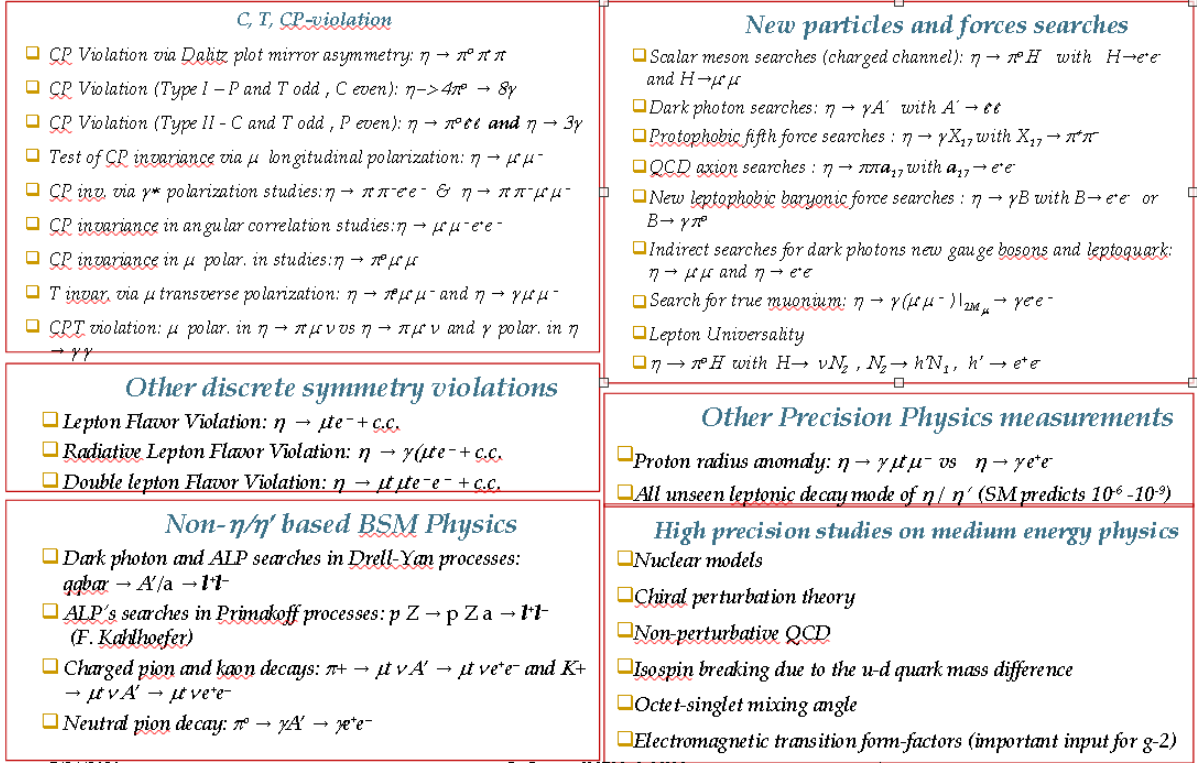 C, T, CP-violation
CP Violation via Dalitz plot mirror asymmetry: η → π° π⁺ π
CP Violation (Type I – P and T odd , C even): η–>4π° → 8γ
CP Violation (Type II - C and T odd , P even): η → π° ℓℓ and η → 3γ
Test of CP invariance via μ longitudinal polarization: η → μ⁺μ⁻
CP inv. via γ* polarization studies: η → π⁺π⁻e⁺e⁻ & η → π⁺π⁻μ⁺μ⁻
CP invariance in angular correlation studies: η → μ⁺μ⁻e⁺e⁻
CP invariance in μ polar. in studies: η → π° μ⁺μ⁻
T invar. via μ transverse polarization: η → π°μ⁺μ⁻ and η → γμ⁺μ⁻
CPT violation: μ polar. in η → π⁺μ⁻ν vs η → π⁻μ⁺ν and γ polar. in η
→ γ γ
Other discrete symmetry violations
Lepton Flavor Violation: η → μ⁺e⁻ + c.c.
Radiative Lepton Flavor Violation: η → γ(μ⁺e⁻ + c.c.
Double lepton Flavor Violation: η → μ⁺μ⁺e⁻e⁻ + c.c.
Non-η/η' based BSM Physics
Dark photon and ALP searches in Drell-Yan processes:
qqbar → A'/a → l⁺l⁻
ALP's searches in Primakoff processes: p Z → p Z a → l⁺l⁻
(F. Kahlhoefer)
Charged pion and kaon decays: π+ → μ⁺ ν A' → μ⁺ ν e⁺e⁻ and K+
→ μ⁺ ν A' → μ⁺ ν e⁺e⁻
Neutral pion decay: π° → γA' → γe⁺e⁻
New particles and forces searches
Scalar meson searches (charged channel): η → π° H with H→e⁺e⁻
and H→μ⁺μ⁻
Dark photon searches: η → γA' with A' → ℓℓ
Protophobic fifth force searches : η → γX₁₇ with X₁₇ → π⁺π⁻
QCD axion searches : η → ππa₁₇ with a₁₇ → e⁺e⁻
New leptophobic baryonic force searches : η → γB with B→ e⁺e⁻ or
B→ γ π°
Indirect searches for dark photons new gauge bosons and leptoquark:
η → μ⁺μ⁻ and η → e⁺e⁻
Search for true muonium: η → γ(μ⁺μ⁻)|₂Mμ → γe⁺e⁻
Lepton Universality
η → π° H with H→ νN₂ , N₂ → h'N₁ , h' → e⁺e⁻
Other Precision Physics measurements
Proton radius anomaly: η → γ μ⁺μ⁻ vs η → γ e⁺e⁻
All unseen leptonic decay mode of η / η ' (SM predicts 10⁻⁶ -10⁻⁹)
High precision studies on medium energy physics
Nuclear models
Chiral perturbation theory
Non-perturbative QCD
Isospin breaking due to the u-d quark mass difference
Octet-singlet mixing angle
Electromagnetic transition form-factors (important input for g-2)